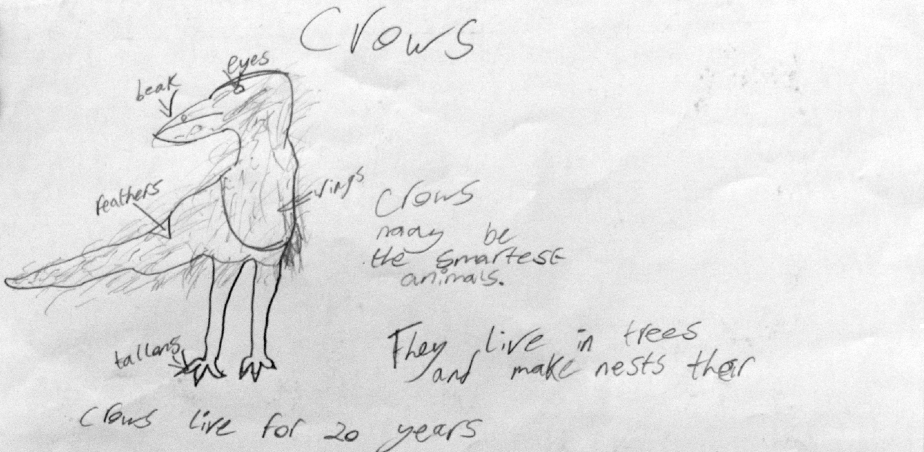 Crows
eyes
beak
feathers
wings
Crows
may be
the smartest
animals.
They live in trees
and make nests their
tallans
Crows live for 20 years